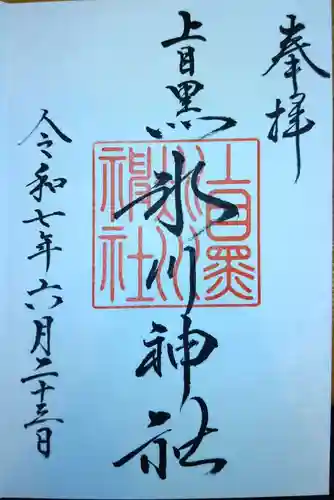 奉拝
上目黒氷川神社
上目黒
氷川神社
令和七年六月二十三日